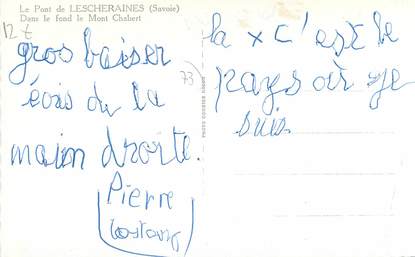 Le Pont de LESCHERAINES (Savoie)
Dans le fond le Mont Chabert
12 t
gros baiser
écris de la
main droite.
Pierre
73)
la x c'est le
pays où je
suis.